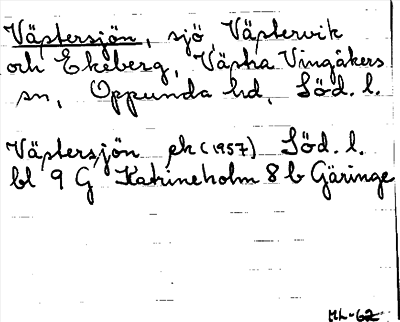 Västersjön, sjö, Västervik
och Ekeberg, Västra Vingåkers
sn, Oppunda hd, Söd. l.
Västersjön ek (1957) Söd. l.
bl 9 G Katrineholm 8 b Gäringe
HL-62